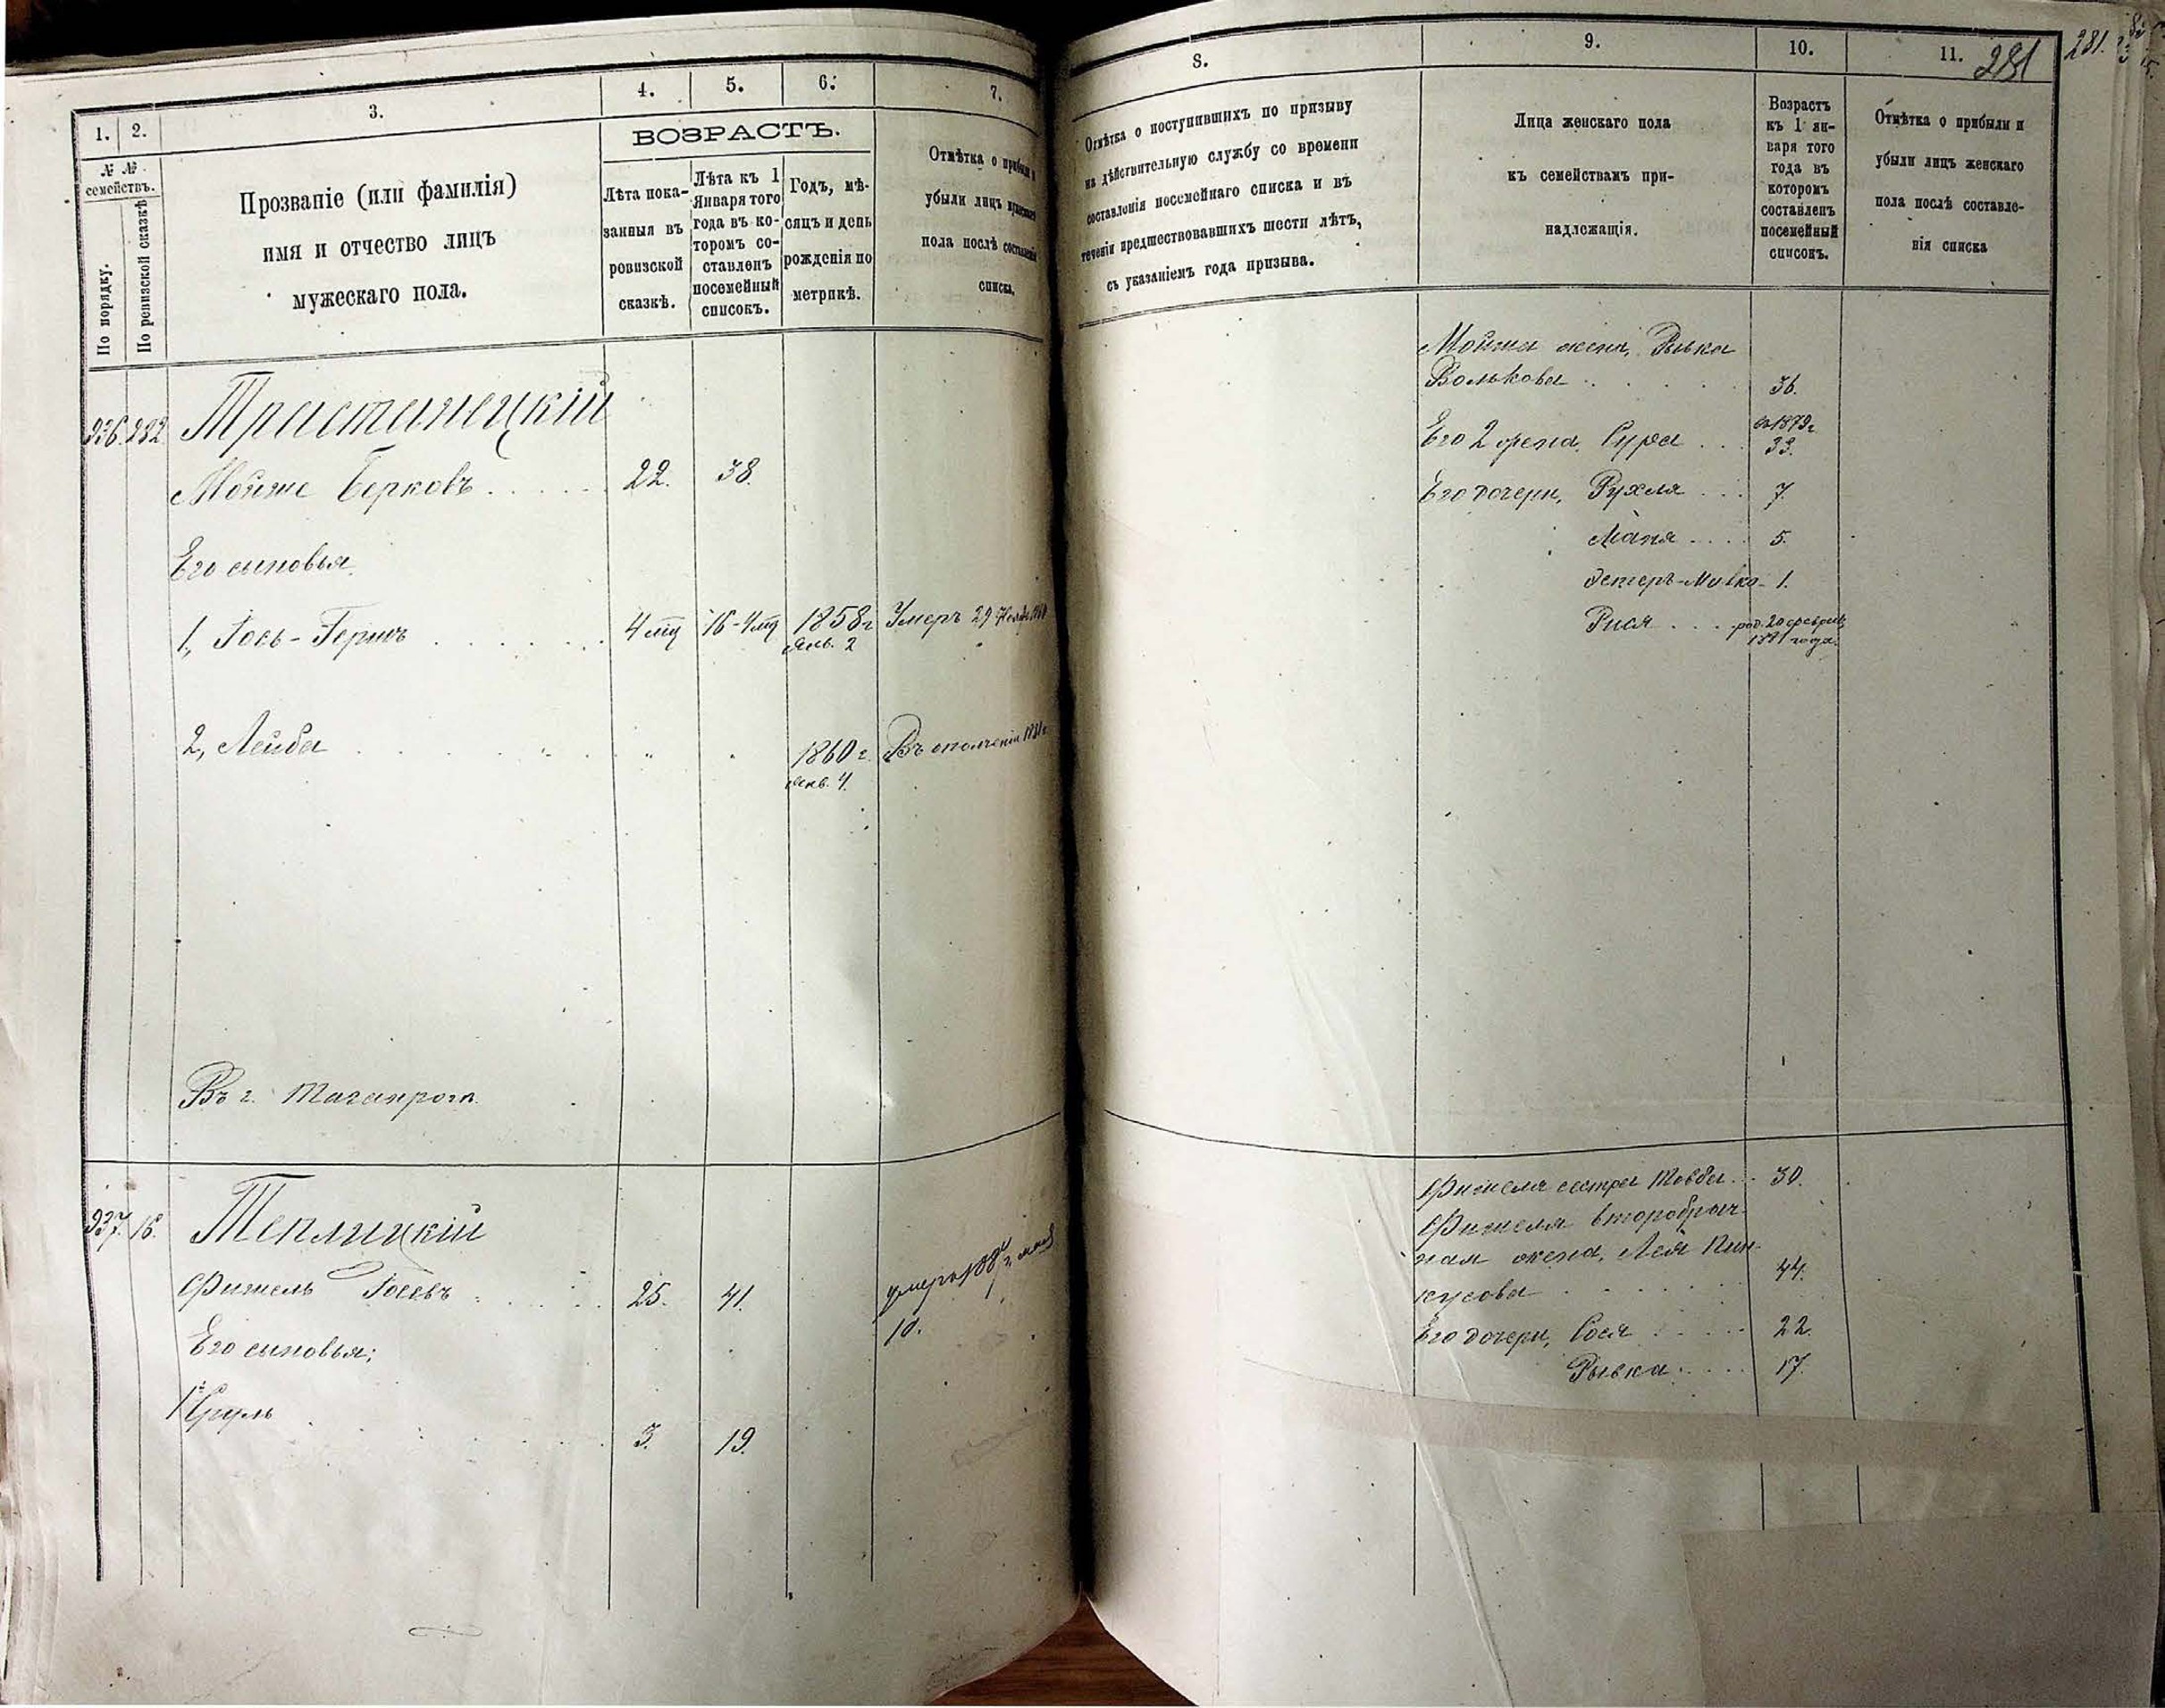 1. 2. 3. 4. 5. 6. 7.
№ №
семействъ.
По порядку.
По ревизской сказкѣ
Прозваніе (или фамилія)
имя и отчество лицъ
мужескаго пола.
ВОЗРАСТЪ.
Лѣта пока-
занныя въ
ревизской
сказкѣ.
Лѣта къ 1
Января того
года въ ко-
торомъ со-
ставленъ
посемейный
списокъ.
Годъ, мѣ-
сяцъ и день
рожденія по
метрикѣ.
Отмѣтка о прибыли и
убыли лицъ мужескаго
пола послѣ составленія
списка.
236. 232. Трастанецкій
Мойше Берковъ 22. 38.
Его сыновья
1, Іось-Герш 4 мц 16-4 мц 1858 г Умеръ 29
Янв. 2
2, Лейба 1860 г. Въ ополченіи 1881 г
Янв. 4.
Въ г. Таганрогѣ
937. 16. Теплицкій
Фишель Іосевъ 25. 41. умеръ
10.
Его сыновья;
1 Сруль 3. 19.
8. 9. 10. 11. 281 281.
Отмѣтка о поступившихъ по призыву
на дѣйствительную службу со времени
составленія посемейнаго списка и въ
теченіи предшествовавшихъ шести лѣтъ,
съ указаніемъ года призыва.
Лица женскаго пола
къ семействамъ при-
надлежащія.
Возрастъ
къ 1 ян-
варя того
года въ
которомъ
составленъ
посемейный
списокъ.
Отмѣтка о прибыли и
убыли лицъ женскаго
пола послѣ составле-
нія списка
Мойша жена, Рывка
Волькова 36.
съ 1879 г
Его 2 жена, Сура 33.
Его дочери, Рухля 7.
Маня 5.
Эстеръ-Мивка 1.
Рися род. 20 февраля
1881 года.
Фишеля сестра Товба 30.
Фишеля второбрач
ная жена, Лея Пин-
кусова 44.
Его дочери, Сося 22.
Рывка 17.